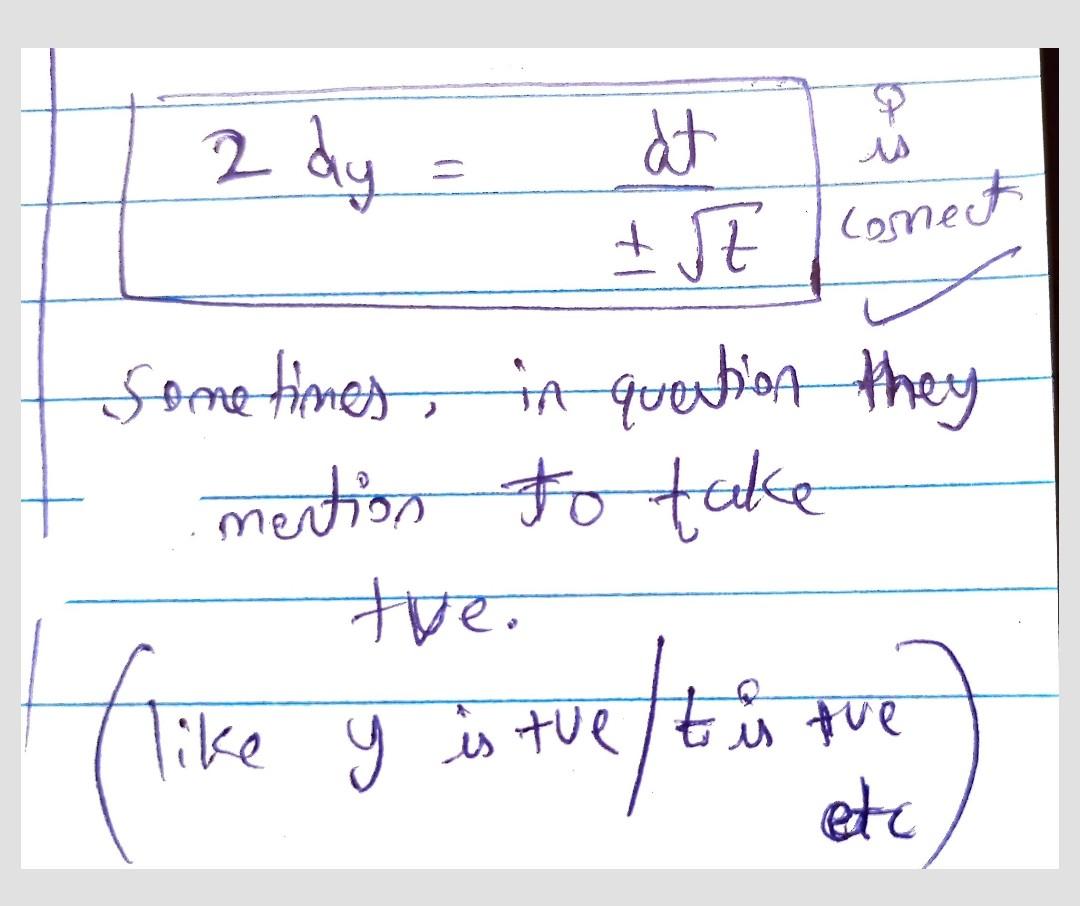 2 dy = dt / ± √t
is
correct ✓
Sometimes, in question they
mention to take
+ve.
(like y is +ve / t is +ve
etc)